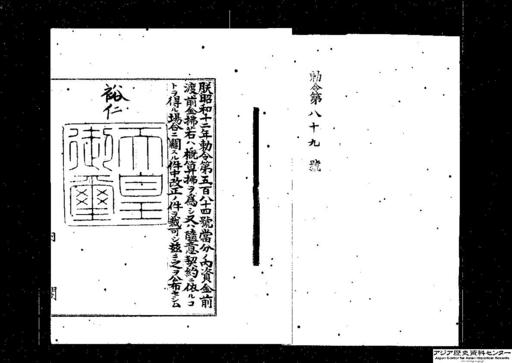 勅令第八十九號
朕昭和十二年勅令第五百八十四號當分ノ內資金前
渡前金拂若ハ概算拂ヲ爲シ又ハ隨意契約ニ依ルコ
トヲ得ル場合ニ關スル件中改正ノ件ヲ裁可シ茲ニ之ヲ公布セシム
裕仁
天皇御璽
内閣
アジア歴史資料センター
Japan Center for Asian Historical Records